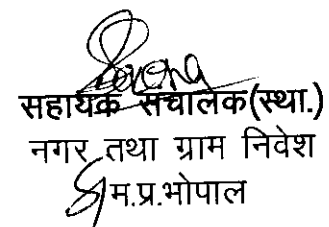 सहायक संचालक(स्था.)
नगर तथा ग्राम निवेश
म.प्र.भोपाल